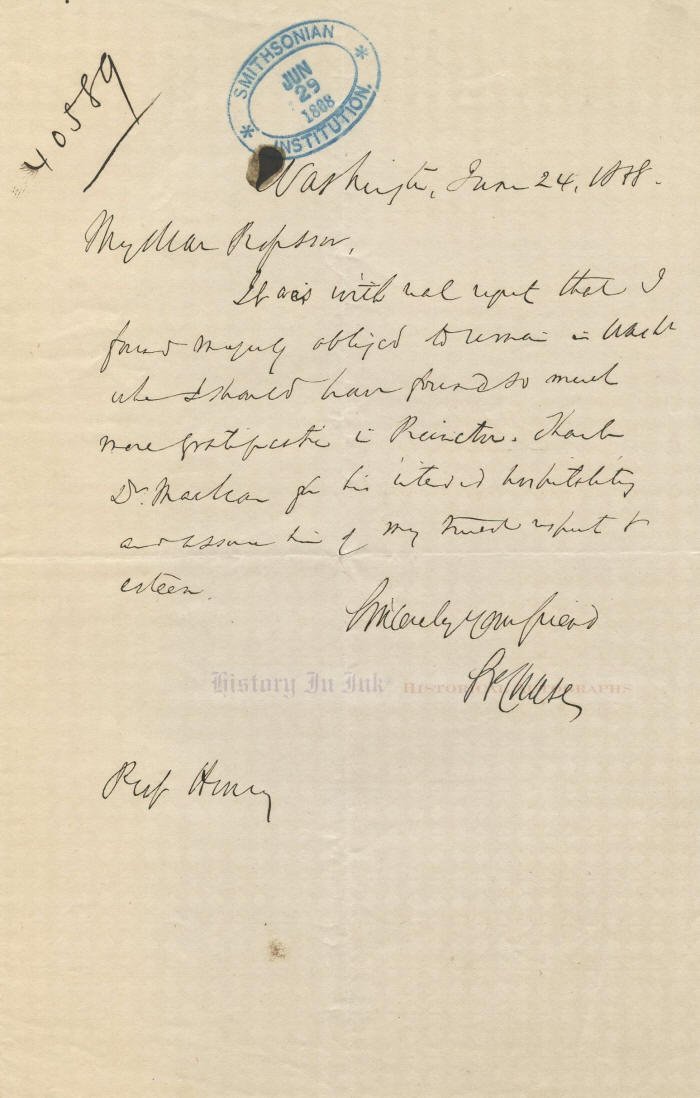 40589
SMITHSONIAN
JUN
29
1868
INSTITUTION.
Washington, June 24, 1868.
My Dear Professor,
It was with real regret that I
found myself obliged to remain in Washn
when I should have found so much
more gratification in Princeton. Thank
Dr. Maclean for his intended hospitality
and assure him of my truest respect &
esteem.
Sincerely your friend
S P Chase
History In Ink HISTORICAL AUTOGRAPHS
Prof Henry